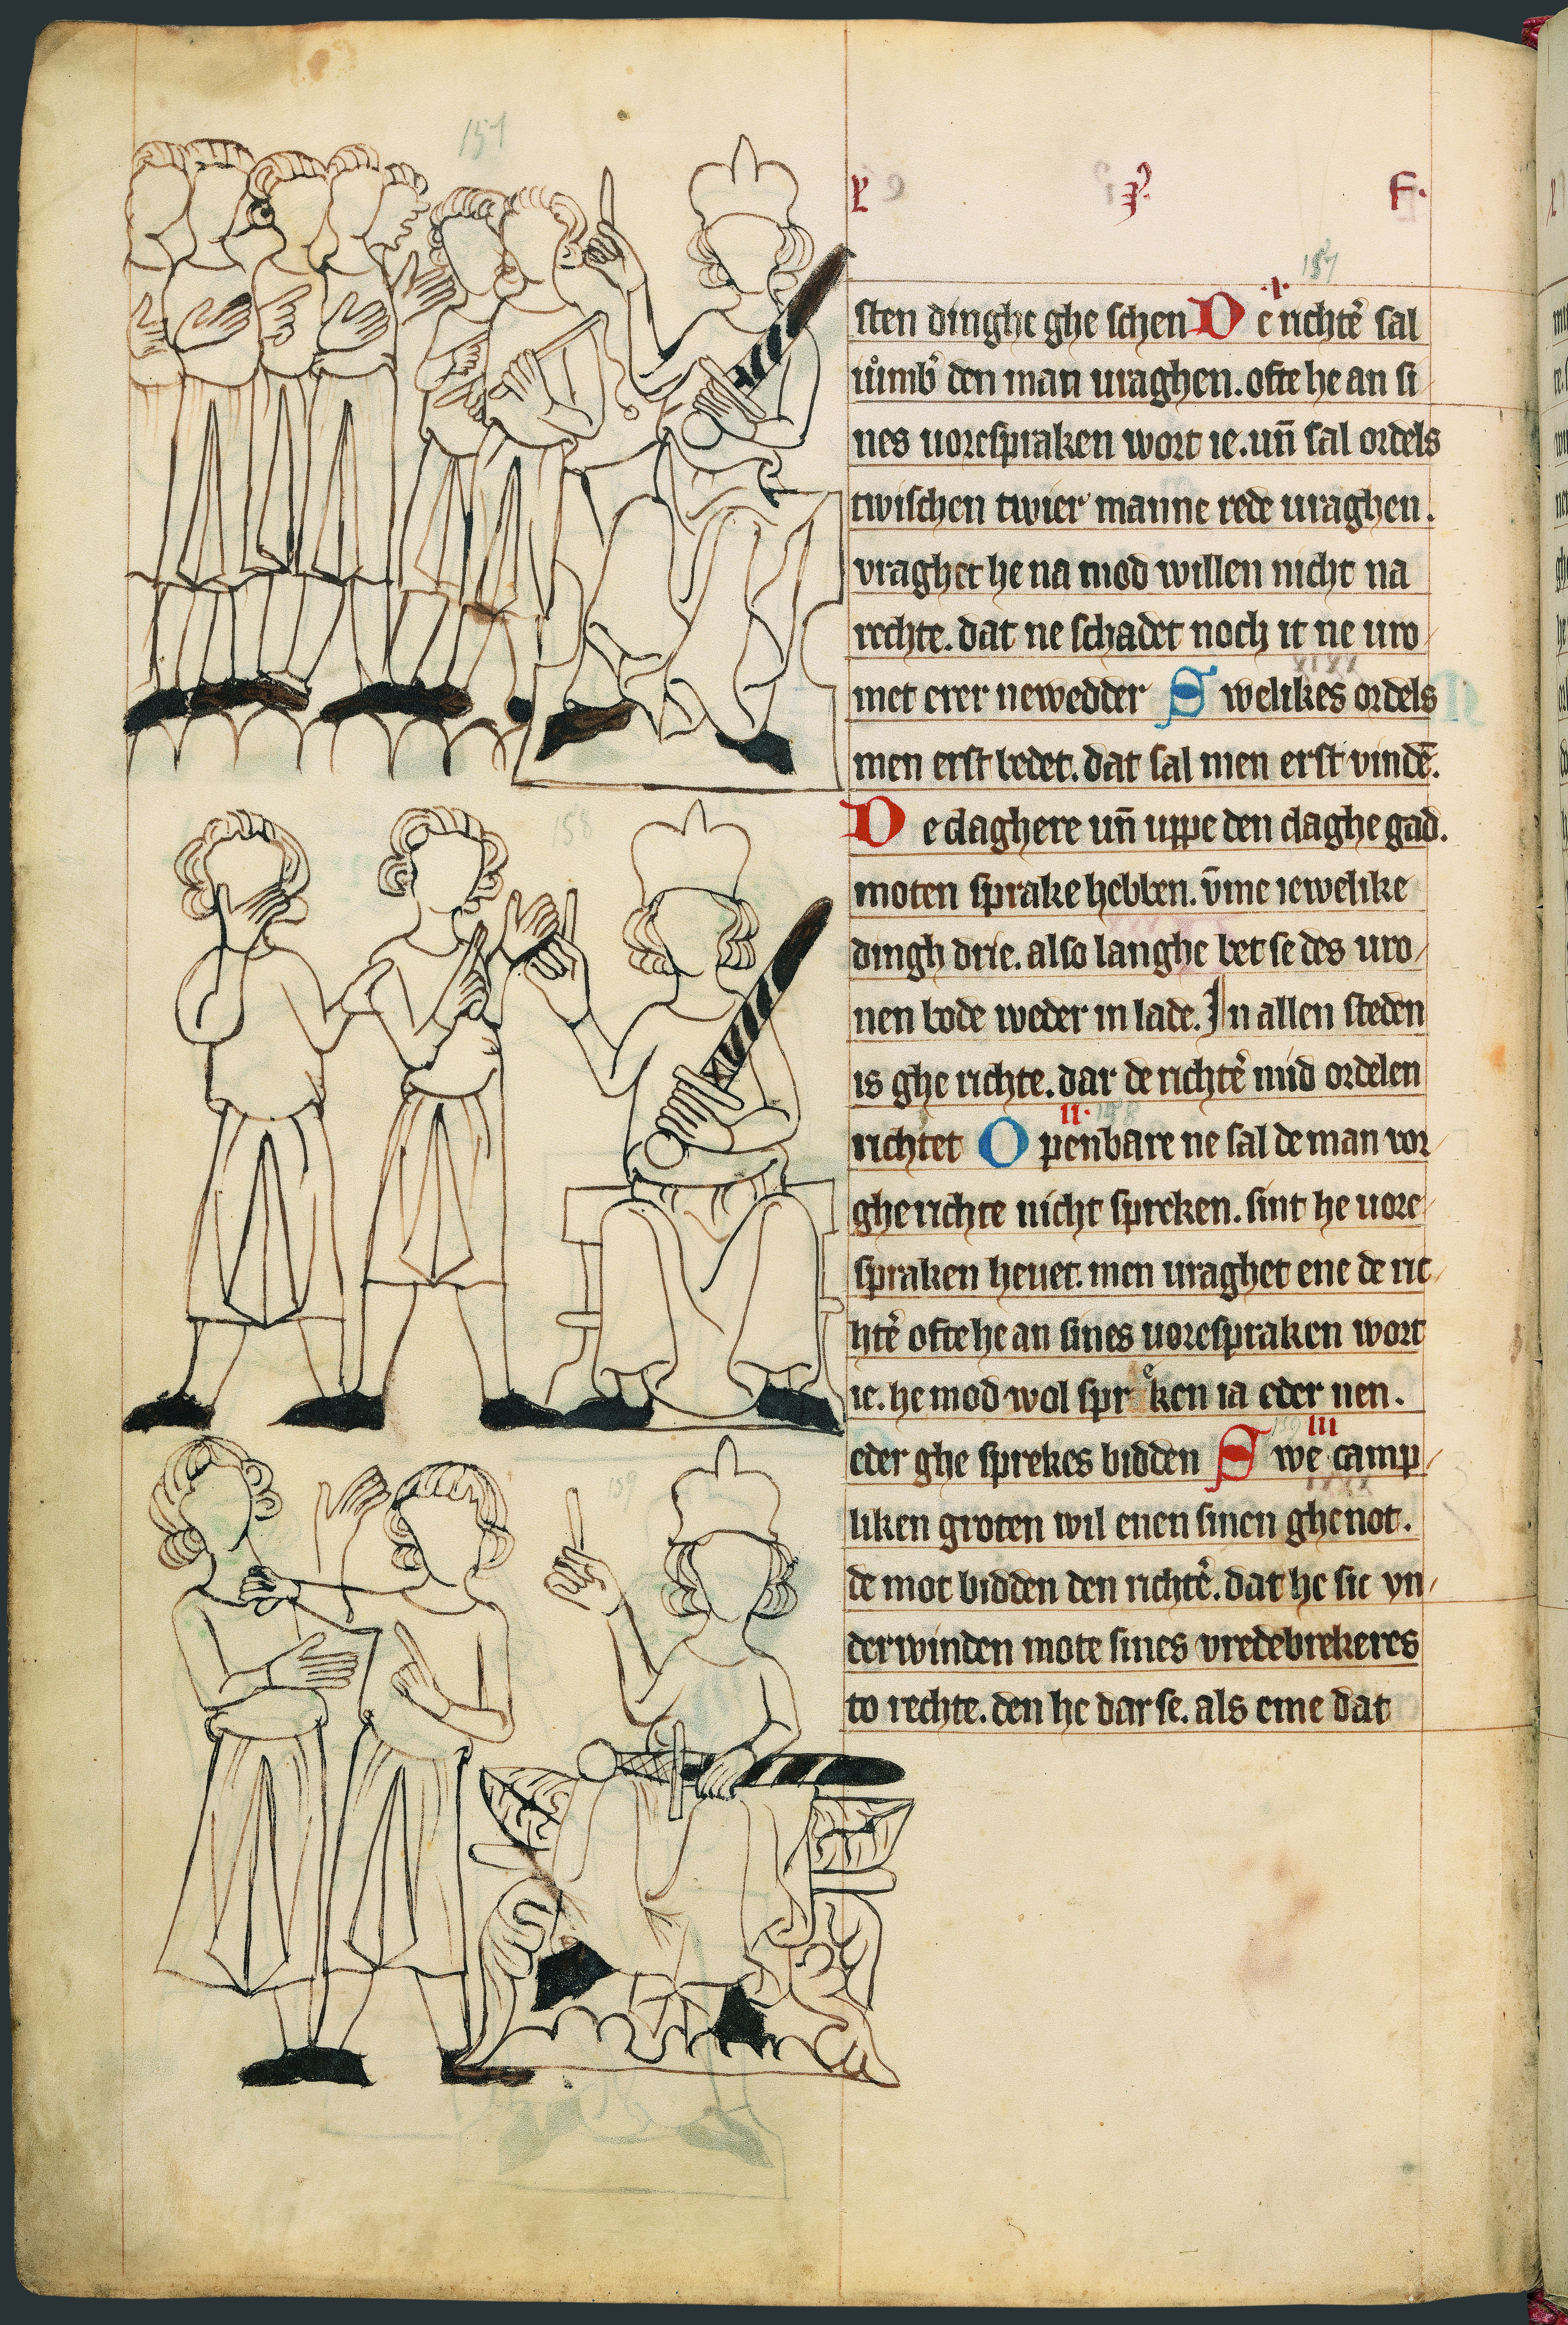 157
L P F.
157
.I.
sten dinghe ghe schen De richte᷑ sal
iůmb᷑ den man uraghen. ofte he an si
nes uorespraken wort ie. un̄ sal ordels
twischen twier manne rede uraghen.
vraghet he na mod willen nicht na
rechte. dat ne schadet noch it ne uro
met erer newedder Swelikes ordels
men erst bedet. dat sal men erst vindē.
De claghere un̄ uppe den claghe gad.
moten sprake hebben. v̄me iewelike
dingh drie. also langhe bet se des uro
nen bode weder in lade. In allen steden
is ghe richte. dar de richte᷑ mid ordelen
II.
richtet Openbare ne sal de man vor
ghe richte nicht spreken. sint he uore
spraken heuet. men uraghet ene de ric
hte᷑ ofte he an sines uorespraken wort
ie. he mod wol sprͤken ia eder nen.
159 III
eder ghe sprekes bidden Swe camp
liken groten wil enen sinen ghenot.
de mot bidden den richte᷑. dat he sic vn
derwinden mote sines vredebrekeres
to rechte. den he dar se. als eme dat
158
159